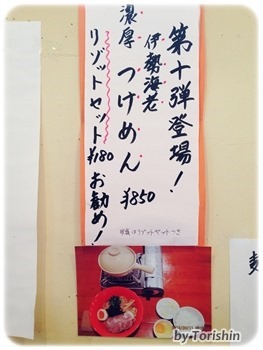 第十弾登場！
伊勢海老
濃厚 つけめん ¥850
リゾットセット¥180 お勧め！
by Torishin